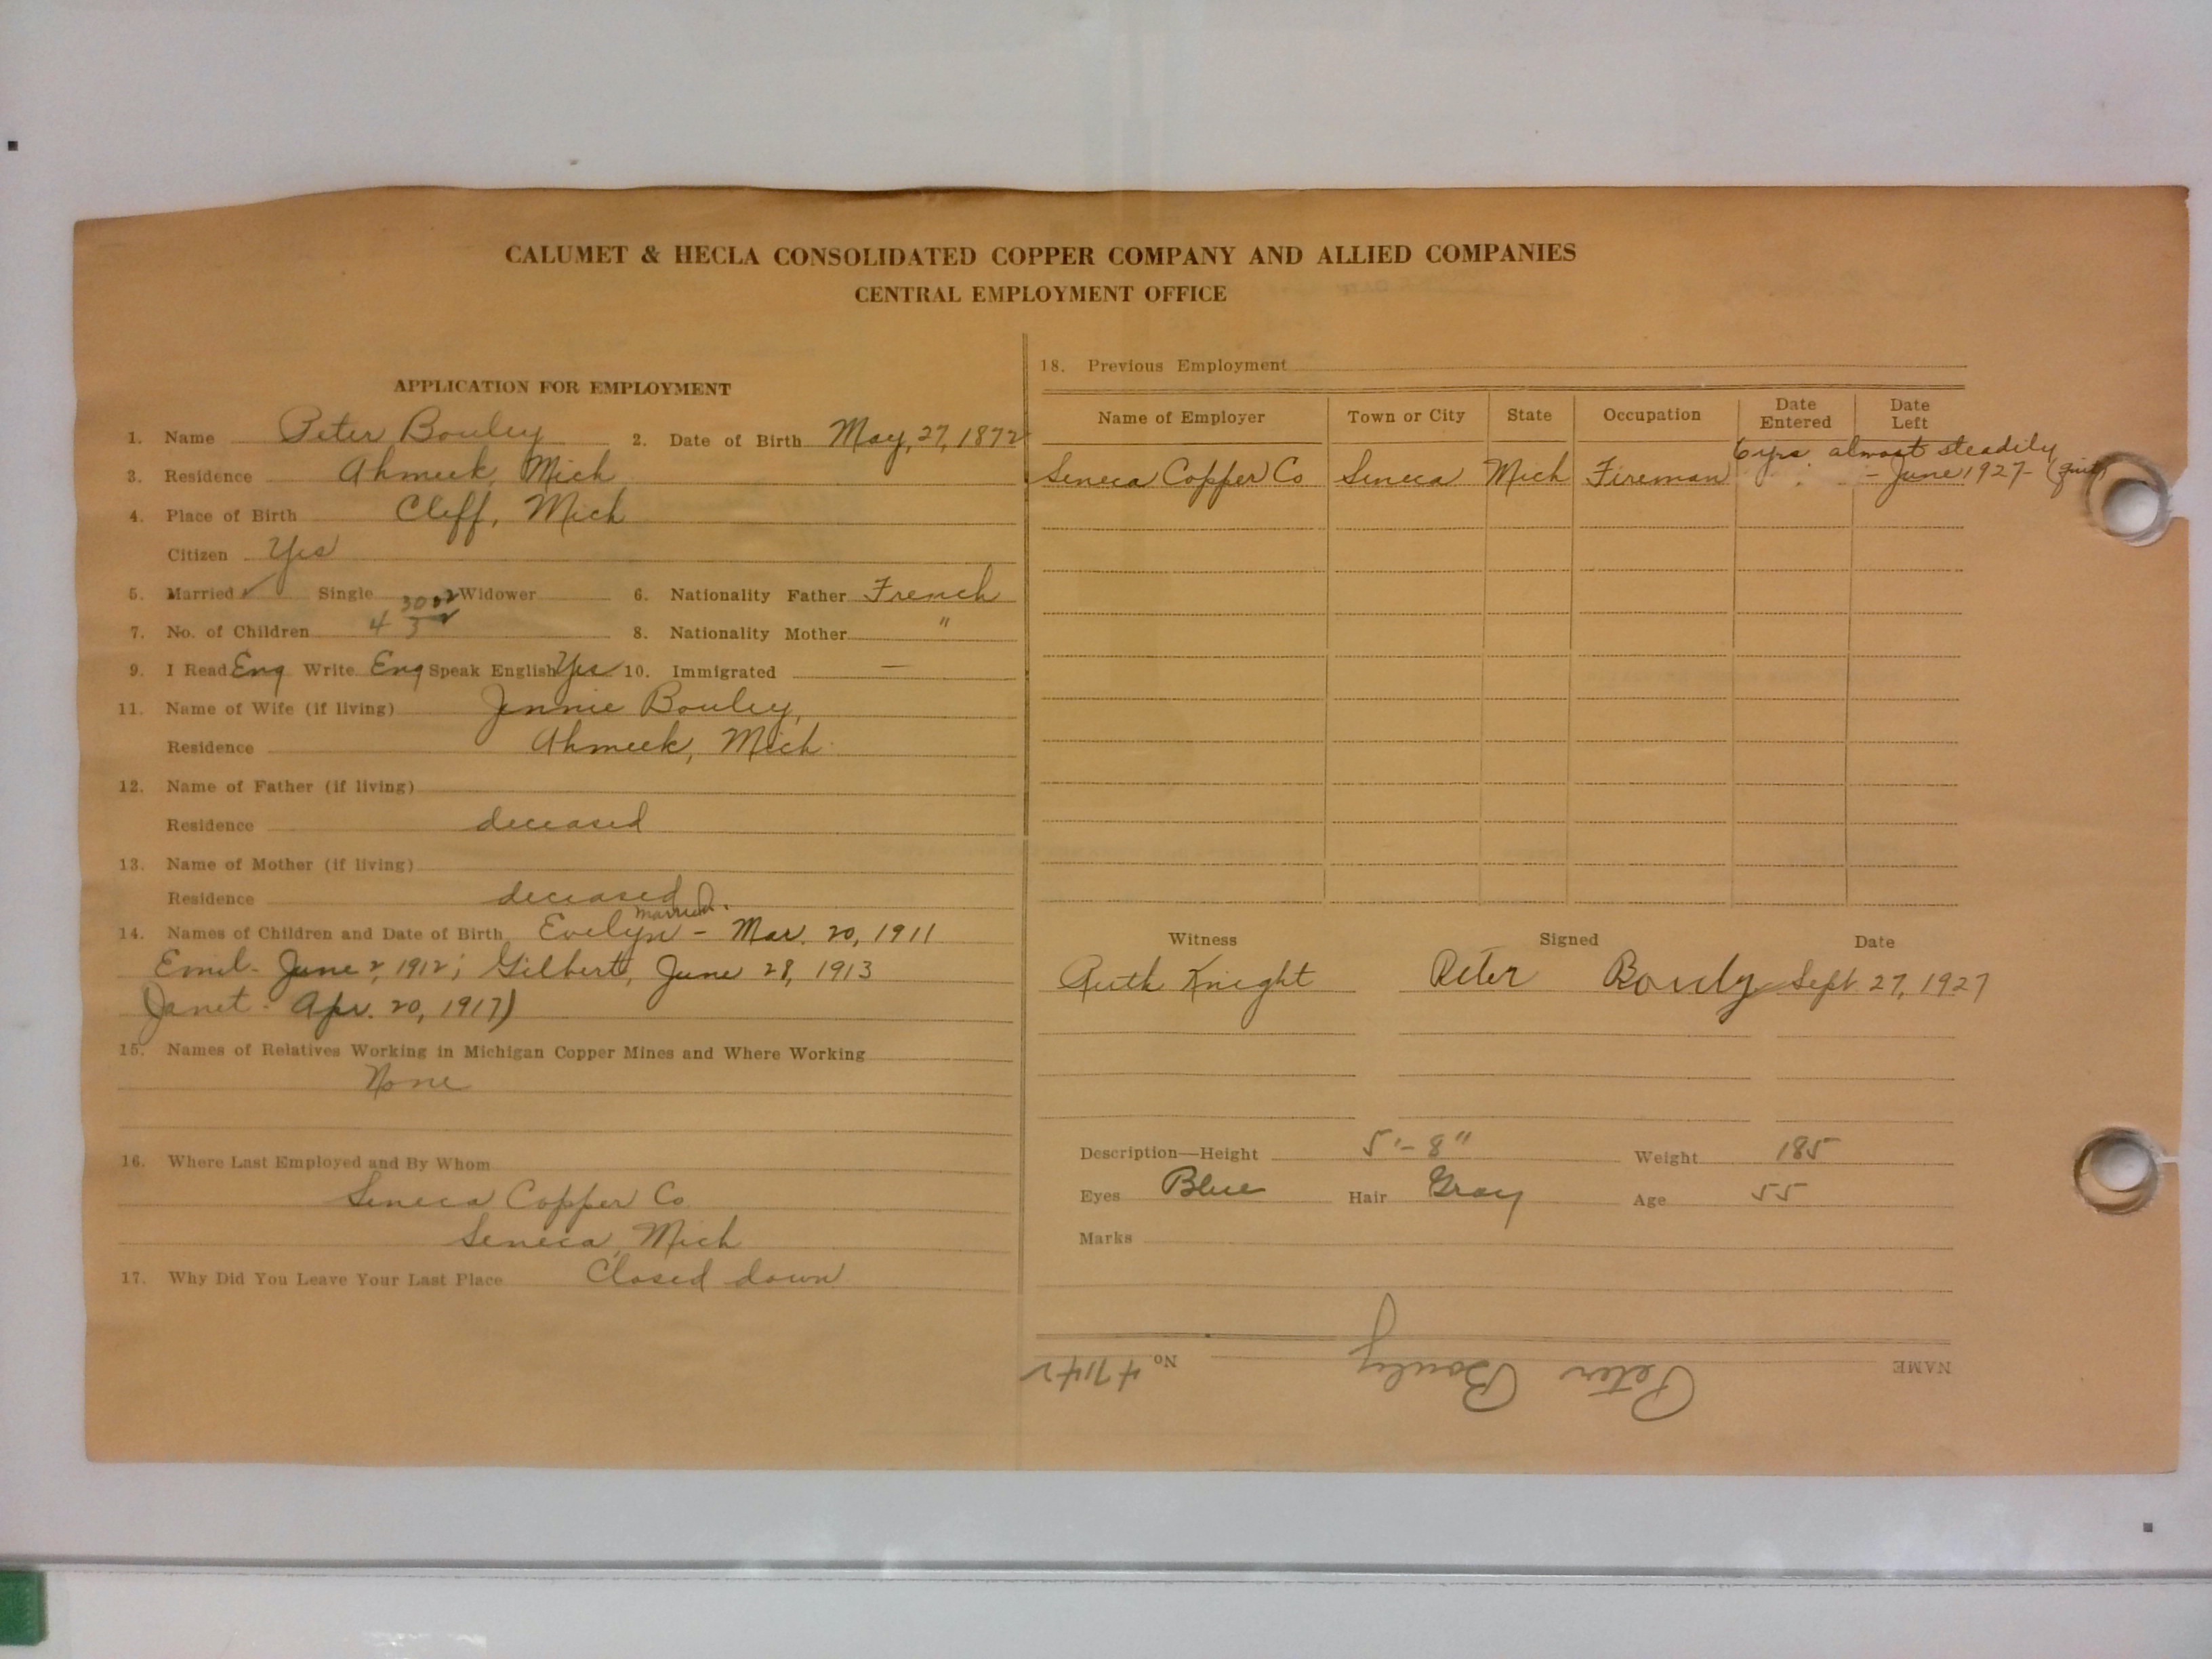 CALUMET & HECLA CONSOLIDATED COPPER COMPANY AND ALLIED COMPANIES
CENTRAL EMPLOYMENT OFFICE
APPLICATION FOR EMPLOYMENT
1. Name Peter Bouley 2. Date of Birth May, 27, 1872
3. Residence Ahmeek, Mich
4. Place of Birth Cliff, Mich
Citizen Yes
5. Married ✓ Single Widower 6. Nationality Father French
7. No. of Children 4 3 8. Nationality Mother "
9. I Read Eng Write Eng Speak English Yes 10. Immigrated —
11. Name of Wife (if living) Jennie Bouley,
Residence Ahmeek, Mich
12. Name of Father (if living)
Residence deceased
13. Name of Mother (if living)
Residence deceased
married.
14. Names of Children and Date of Birth Evelyn - Mar. 20, 1911
Emil - June 2, 1912; Gilbert, June 28, 1913
(Janet - Apr. 20, 1917)
15. Names of Relatives Working in Michigan Copper Mines and Where Working
None
16. Where Last Employed and By Whom
Seneca Copper Co
Seneca, Mich
17. Why Did You Leave Your Last Place Closed down
18. Previous Employment
Name of Employer Town or City State Occupation Date Entered Date Left
6 yrs. almost steadily
Seneca Copper Co Seneca Mich Fireman - June 1927 - (quit)
Witness Signed Date
Ruth Knight Peter Bouly Sept. 27, 1927
Description—Height 5'-8" Weight 185
Eyes Blue Hair Gray Age 55
Marks
NAME Peter Bouley No 47142